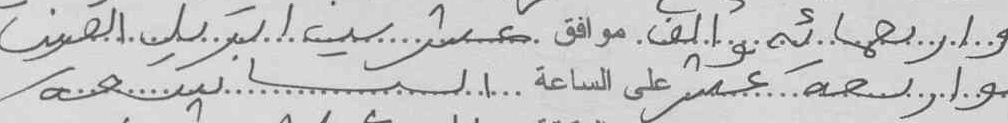 واربعمائه والف موافق عشرين ابريل الفين
واربعة عشر على الساعة السابعة